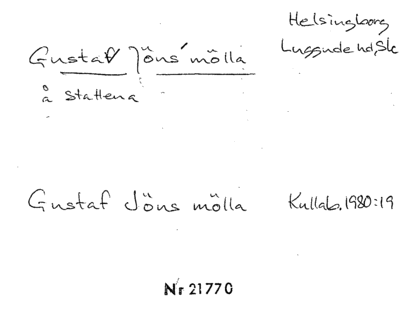 Helsingborg
Luggude hd, Sk
Gustaf Jöns' mölla
å Stattena
Gustaf Jöns mölla
Kullab. 1980:19
Nr 21770